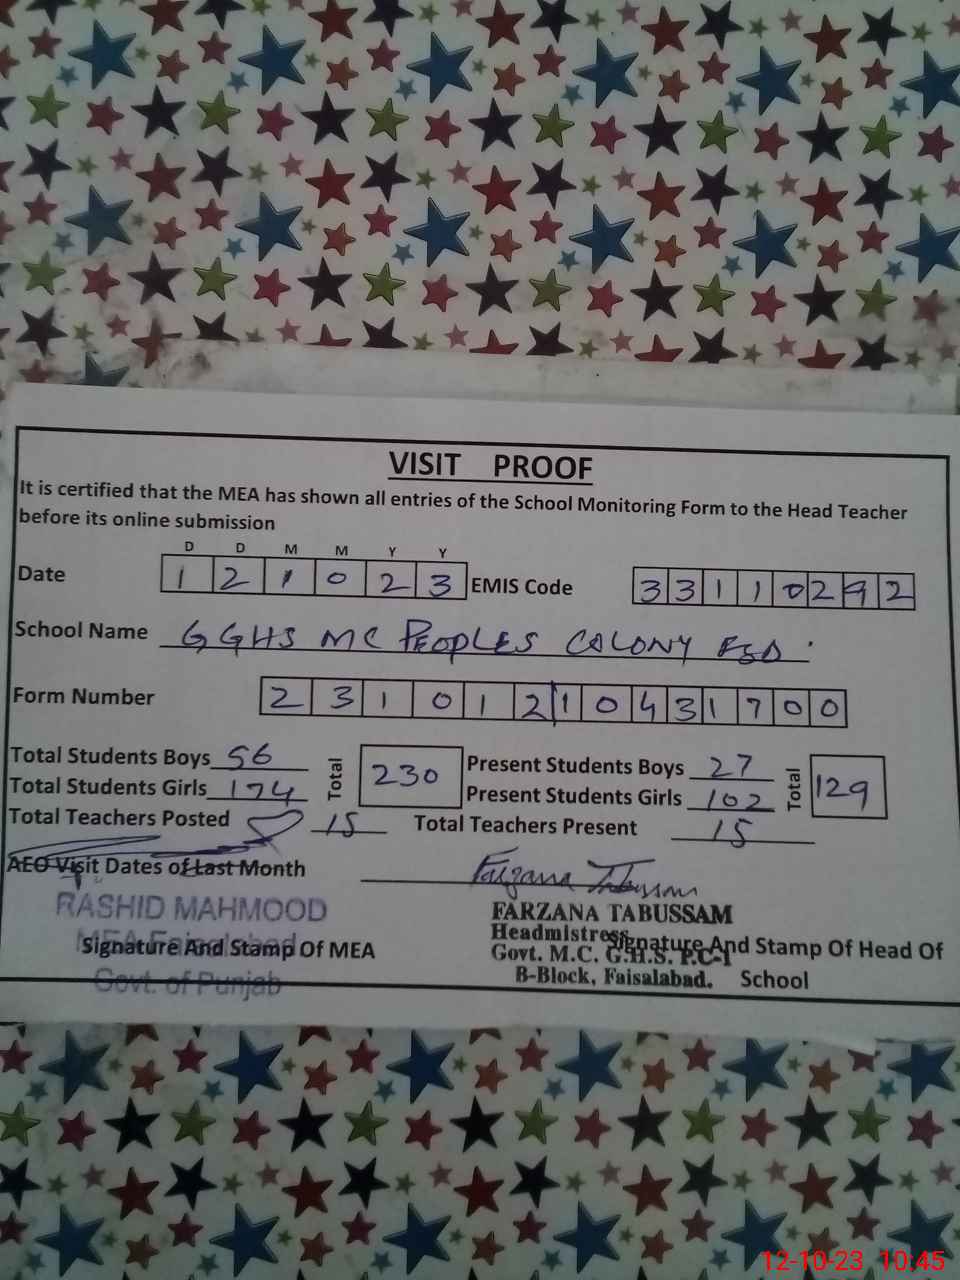 VISIT PROOF
It is certified that the MEA has shown all entries of the School Monitoring Form to the Head Teacher
before its online submission
D D M M Y Y
Date 1 2 1 0 2 3 EMIS Code 3 3 1 1 0 2 9 2
School Name GGHS MC PEOPLES COLONY FSD
Form Number 2 3 1 0 1 2 1 0 4 3 1 7 0 0
Total Students Boys 56 Total 230 Present Students Boys 27 Total 129
Total Students Girls 174 Present Students Girls 102
Total Teachers Posted 15 Total Teachers Present 15
AEO Visit Dates of Last Month Farzana Tabussam
RASHID MAHMOOD FARZANA TABUSSAM
MEA Faisalabad Headmistress
Signature And Stamp Of MEA Signature And Stamp Of Head Of
Govt. M.C. G.H.S. P.C-1
Govt. of Punjab B-Block, Faisalabad. School
12-10-23 10:45